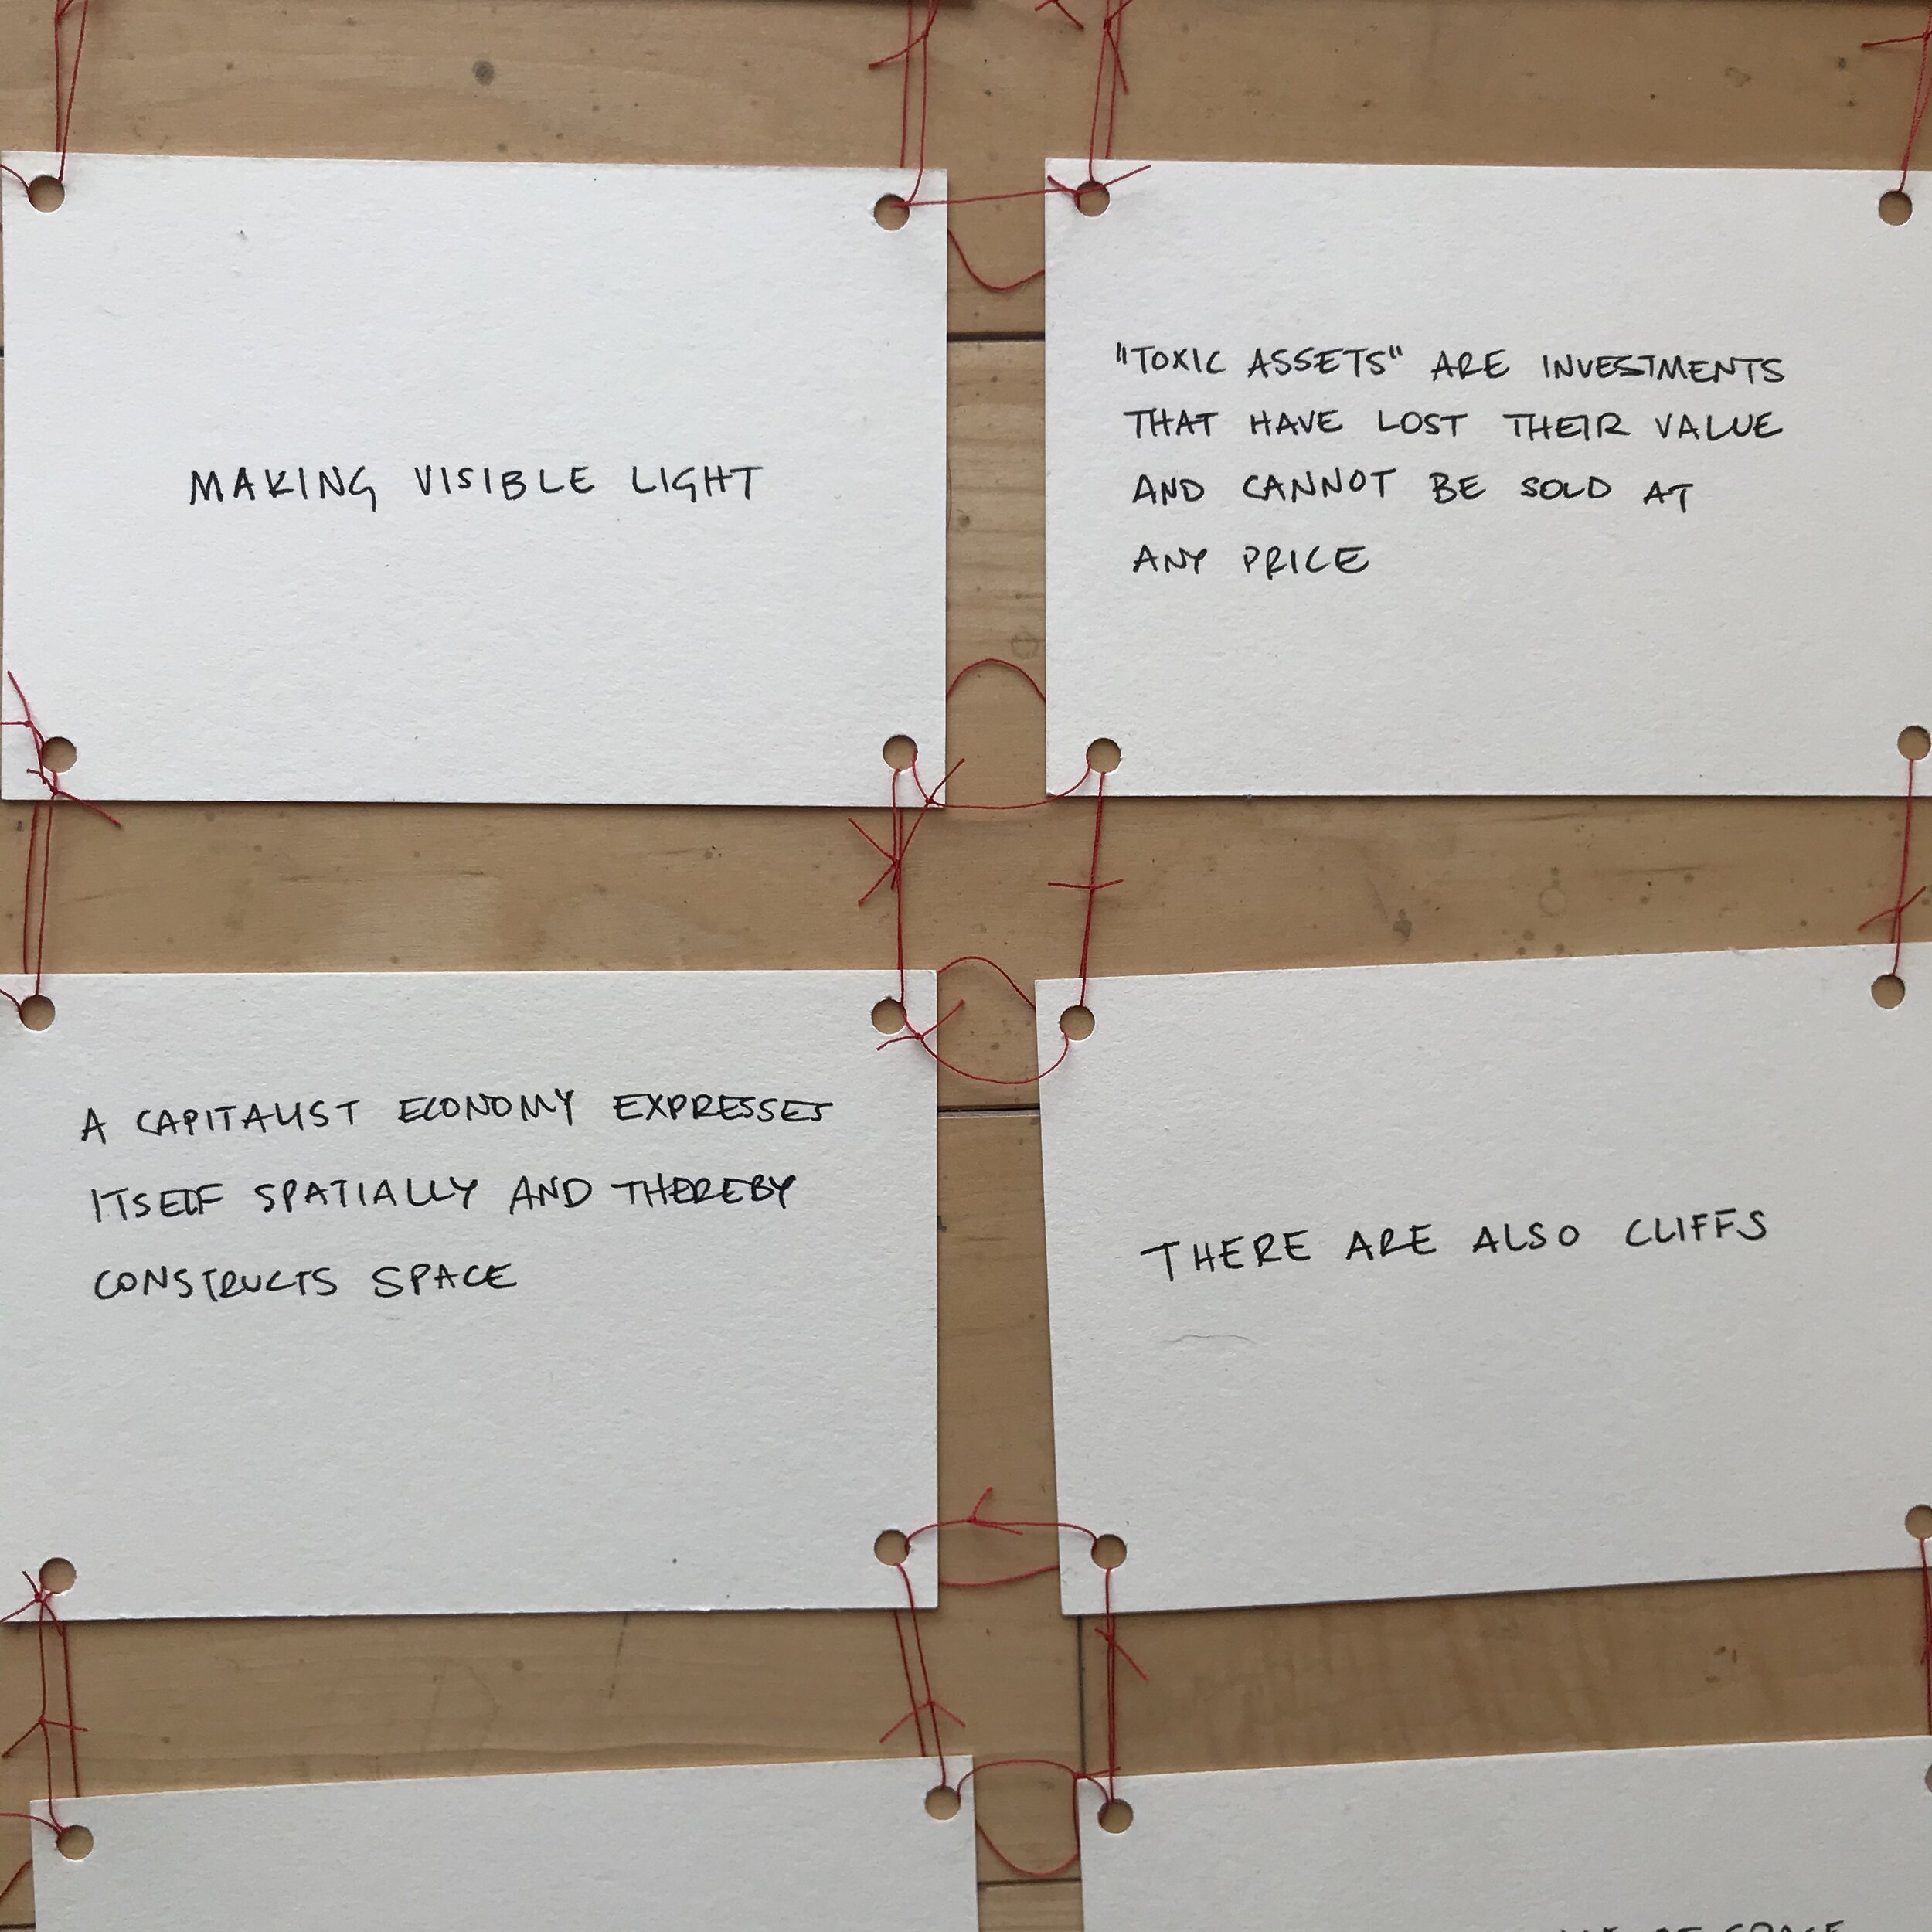 MAKING VISIBLE LIGHT
"TOXIC ASSETS" ARE INVESTMENTS
THAT HAVE LOST THEIR VALUE
AND CANNOT BE SOLD AT
ANY PRICE
A CAPITALIST ECONOMY EXPRESSES
ITSELF SPATIALLY AND THEREBY
CONSTRUCTS SPACE
THERE ARE ALSO CLIFFS
SPACE